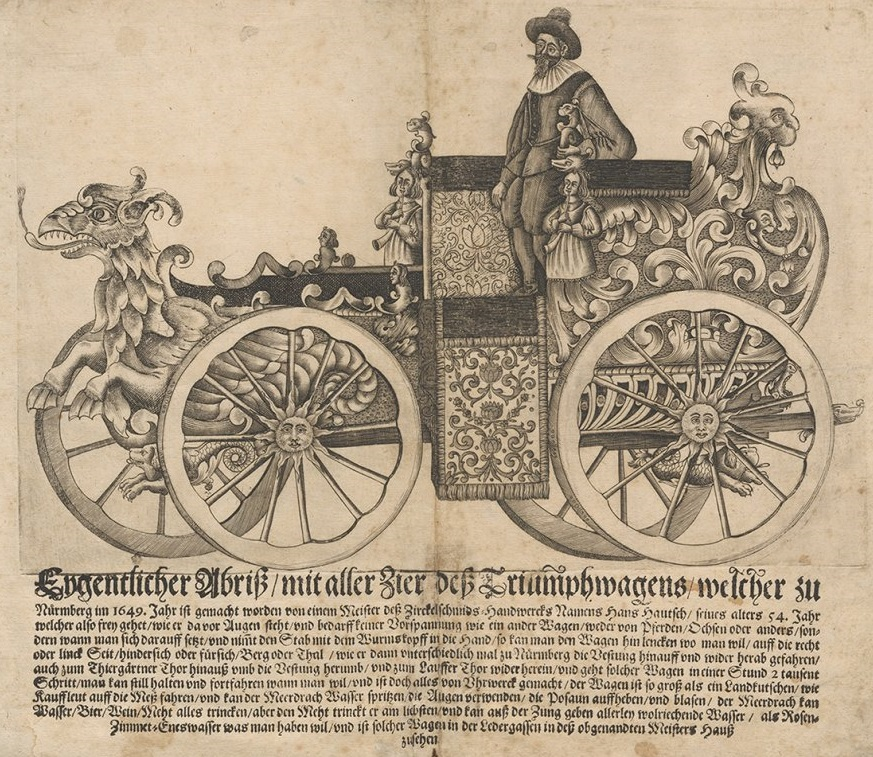 Eygentlicher Abriß / mit aller Zier deß Triumphwagens / welcher zu
Nürmberg im 1649. Jahr ist gemacht worden von einem Meister deß Zirckelschmids-Handwercks Namens Hans Hautsch / seines alters 54. Jahr
welcher also frey gehet / wie er da vor Augen steht / und bedarff keiner Vorspannung wie ein ander Wagen / weder von Pferden / Ochsen oder anders / son-
dern wann man sich darauff setzt / und nimt den Stab mit dem Wurmskopff in die Hand / so kan man den Wagen hin lencken wo man wil / auff die recht
oder linck Seit / hindersich oder fürsich / Berg oder Thal / wie er dann unterschiedlich mal zu Nürmberg die Vestung hinauff vnd wider herab gefahren /
auch zum Thiergärtner Thor hinauß vmb die Vestung herumb / vnd zum Lauffer Thor wider herein / vnd geht solcher Wagen in einer Stund 2 tausent
Schritt / mau kan still halten vnd fortfahren wann man wil / vnd ist doch alles von Vhrwerck gemacht / der Wagen ist so groß als ein Landkutschen / wie
Kauffleut auff die Meß fahren / vnd kan der Meerdrach Wasser spritzen / die Augen verwenden / die Posaun auffheben / vnd blasen / der Meerdrach kan
Wasser / Bier / Wein / Meht alles trincken / aber den Meht trinckt er am liebsten / vnd kan auß der Zung geben allerley wolriechende Wasser / als Rosen-
Zimmet- was man haben wil / vnd ist solcher Wagen in der Ledergassen in deß obgenandten Meisters Hauß
zusehen